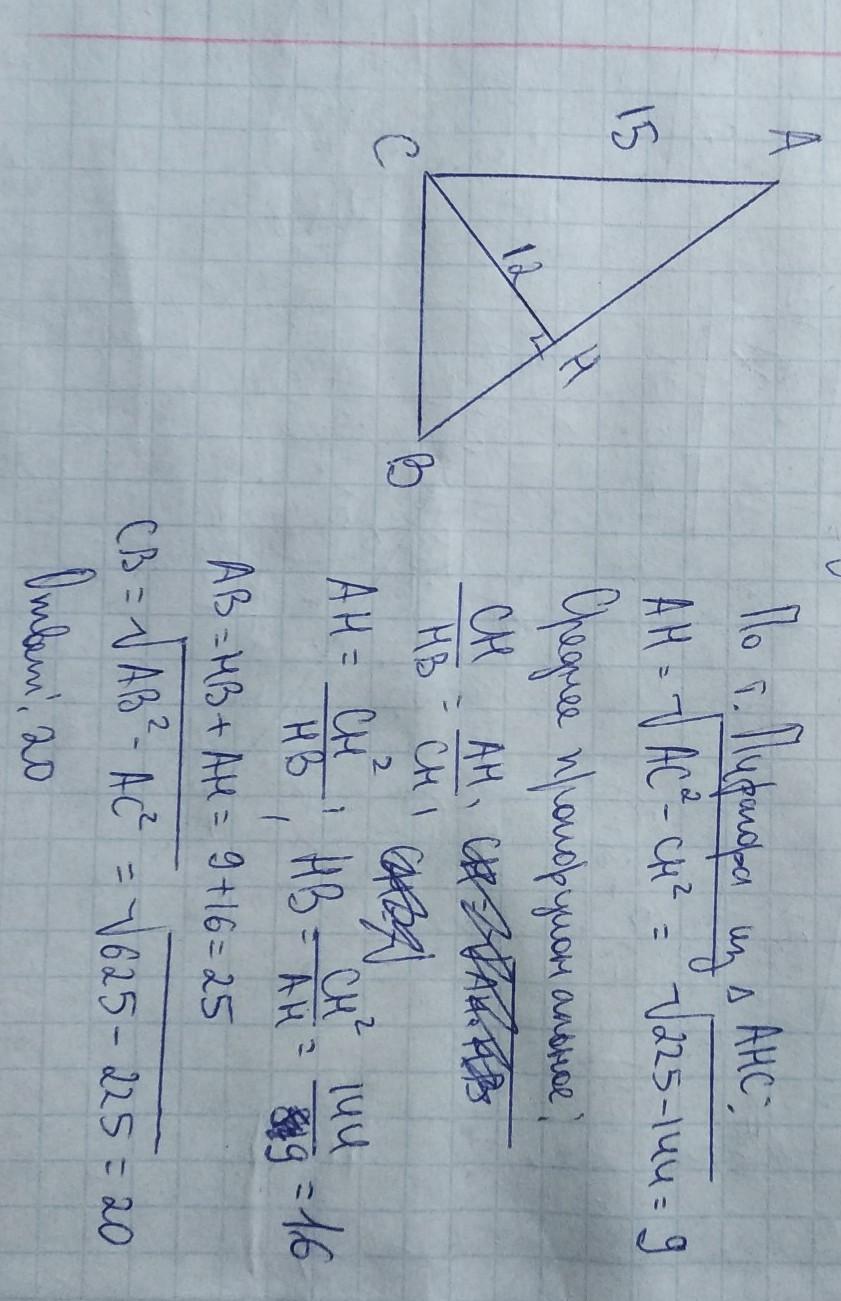 A
15
C
12
H
B
По т. Пифагора из Δ AHC:
AH = √AC² - CH² = √225-144 = 9
Среднее пропорциональное:
CH/HB = AH/CH;
AH = CH²/HB; HB = CH²/AH = 144/9 = 16
AB = HB + AH = 9+16 = 25
CB = √AB² - AC² = √625 - 225 = 20
Ответ: 20